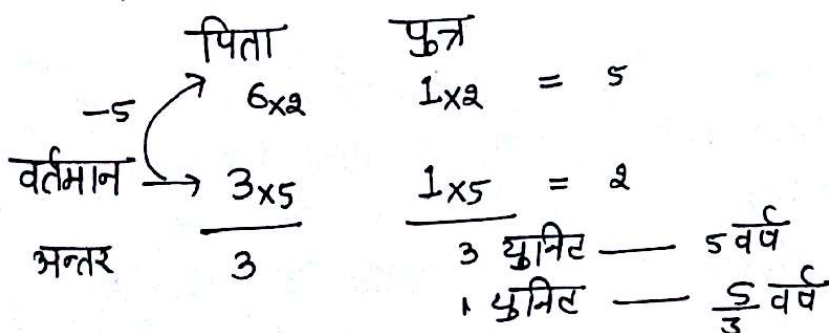 पिता पुत्र
-5 6×2 1×2 = 5
वर्तमान → 3×5 1×5 = 2
अन्तर 3 3 युनिट — 5 वर्ष
1 युनिट — 5/3 वर्ष